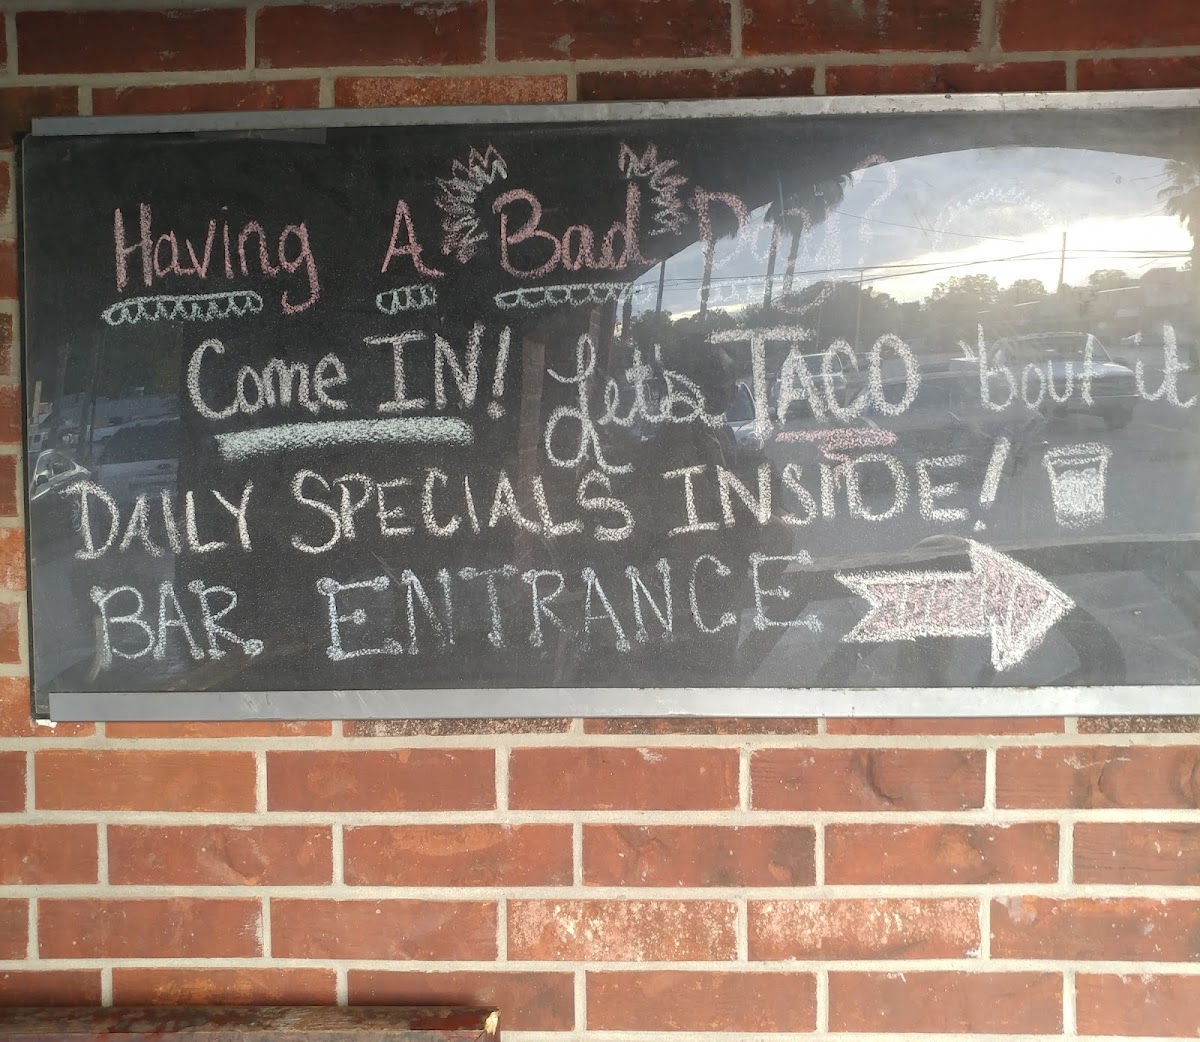 Having A Bad Day?
Come IN! Let's TACO 'bout it
DAILY SPECIALS INSIDE!
BAR ENTRANCE